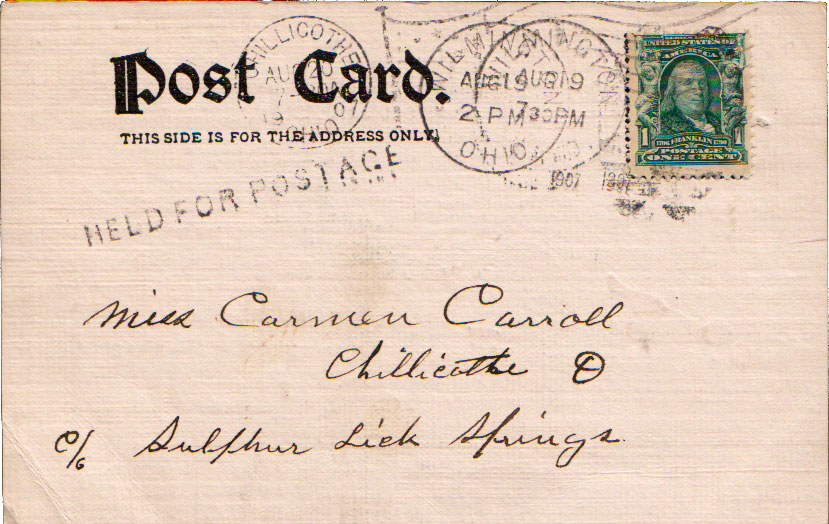 Post Card.
THIS SIDE IS FOR THE ADDRESS ONLY.
CHILLICOTHE
AUG 20
7 AM
1907
OHIO
WILMINGTON
AUG 19
2 PM
OHIO
AUG 19
7 30 PM
1907
UNITED STATES OF
AMERICA
1706 FRANKLIN 1790
1 POSTAGE
ONE CENT
HELD FOR POSTAGE
Miss Carmen Carroll
Chillicothe O
c/o Sulphur Lick Springs